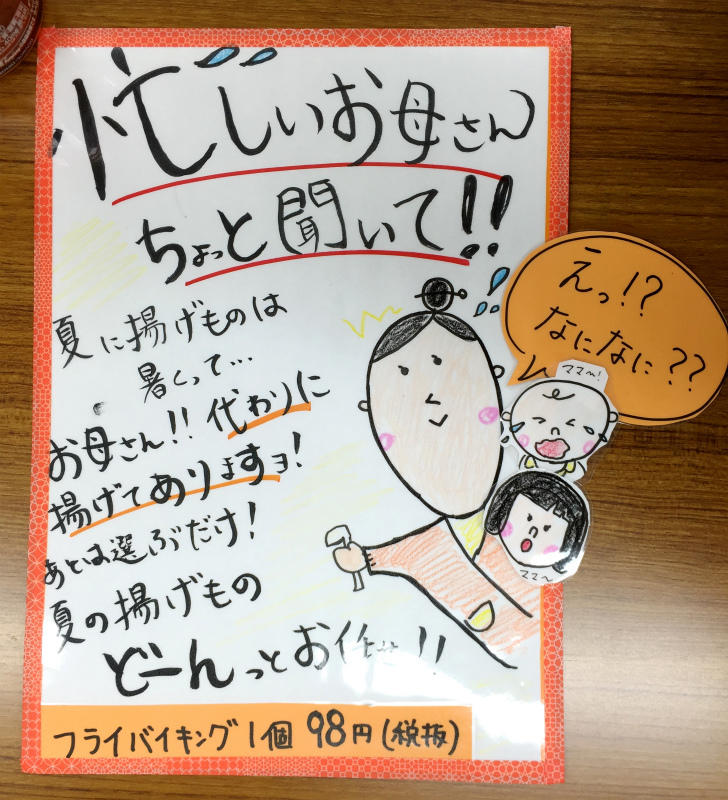 忙しいお母さん
ちょっと聞いて!!
えっ!?
なになに??
夏に揚げものは
暑くって…
お母さん!!代わりに
揚げてありますョ!
あとは選ぶだけ!
夏の揚げもの
どーんっとお任せ!!
ママ〜!
ママ〜
フライバイキング1個 98円(税抜)